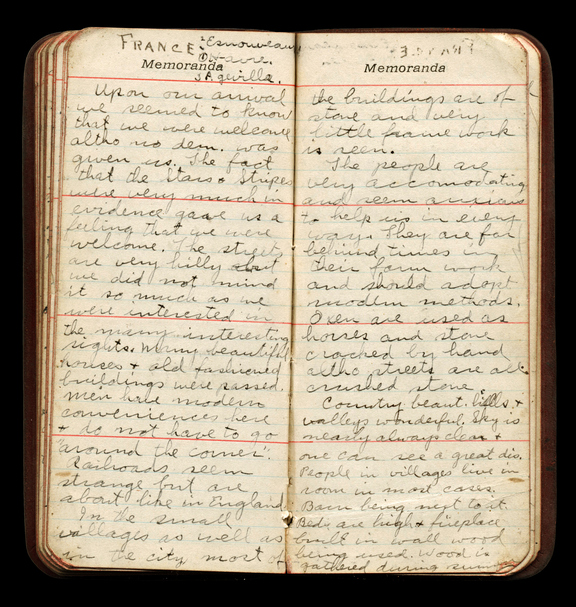 FRANCE: 2 Esnouveaux
1 Havre.
Memoranda
3 Aquilla.
Upon our arrival
we seemed to know
that we were welcome
altho no dem. was
given us. The fact
that the Stars & Stripes
were very much in
evidence gave us a
feeling that we were
welcome. The streets
are very hilly but
we did not mind
it so much as we
were interested in
the many interesting
sights. Many beautiful
houses & old fashioned
buildings were passed.
Men have modern
conveniences here
& do not have to go
"around the corner".
Railroads seem
strange but are
about like in England
In the small
villages as well as
in the city most of
FRANCE
Memoranda
the buildings are of
stone and very
little frame work
is seen.
The people are
very accomodating
and seem anxious
to help us in every
way. They are far
behind times in
their farm work
and should adopt
modern methods.
Oxen are used as
horses and stone
cracked by hand
altho streets are all
crushed stone
Country beaut. hills &
valleys wonderful. Sky is
nearly always clear &
one can see a great dis.
People in villages live in
room in most cases.
Barn being next to it.
Beds are high & fireplace
built in wall wood
being used. Wood is
gathered during summer